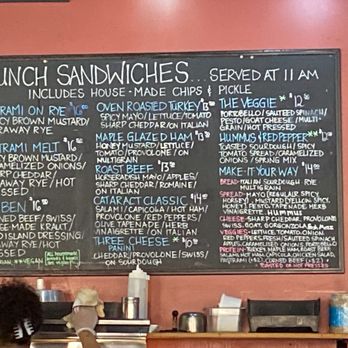 UNCH SANDWICHES... SERVED AT 11 AM
INCLUDES HOUSE-MADE CHIPS & PICKLE
RAMI ON RYE
CY BROWN MUSTARD/
RAWAY RYE
RAMI MELT
CY BROWN MUSTARD/
AMELIZED ONIONS/
ARP CHEDDAR/
AWAY RYE/HOT
SSED
BEN
NED BEEF/SWISS/
SE MADE KRAUT/
D ISLAND DRESSING/
AWAY RYE/HOT
SSED
OVEN ROASTED TURKEY
SPICY MAYO/LETTUCE/TOMATO
SHARP CHEDDAR ON ITALIAN
MAPLE GLAZED HAM
HONEY MUSTARD/LETTUCE/
TOMATO/PROVOLONE/ON
MULTIGRAIN
ROAST BEEF
HORSERADISH MAYO/APPLES/
SHARP CHEDDAR/ROMAINE/
ON ITALIAN
CATARACT CLASSIC $14
SALAMI/CAPICOLA/HAM/
PROVOLONE/RED PEPPERS/
OLIVE TAPENADE/HERB
VINAIGRETTE/ON ITALIAN
THREE CHEESE *
PANINI
CHEDDAR/PROVOLONE/SWISS/
ON SOURDOUGH
THE VEGGIE *
PORTOBELLO/SAUTEED SPINACH/
PESTO/GOAT CHEESE/MULTI-
GRAIN/HOT PRESSED
HUMMUS & RED PEPPER
TOASTED SOURDOUGH/SPICY
TOMATO SPREAD/CARAMELIZED
ONIONS/SPRING MIX
MAKE-IT-YOUR WAY $14
BREAD-ITALIAN SOURDOUGH RYE
MULTIGRAIN
SPREAD-MAYO (REGULAR, SPICY,
HORSEY), MUSTARD (YELLOW, SPICY,
HONEY) PESTO, TAPENADE, HERB
VINAIGRETTE, HUMMUS
CHEESE-SHARP CHEDDAR, PROVOLONE,
SWISS, GOAT, GORGONZOLA
VEGGIES-LETTUCE, TOMATO, ONION,
APPLES, CARAMELIZED ONIONS, PORTOBELLO
PROTEIN-TURKEY, MAPLE HAM, ROAST BEEF,
SALAMI, HOT HAM, CAPICOLA, CHICKEN SALAD,
TOASTED OR HOT PRESSED